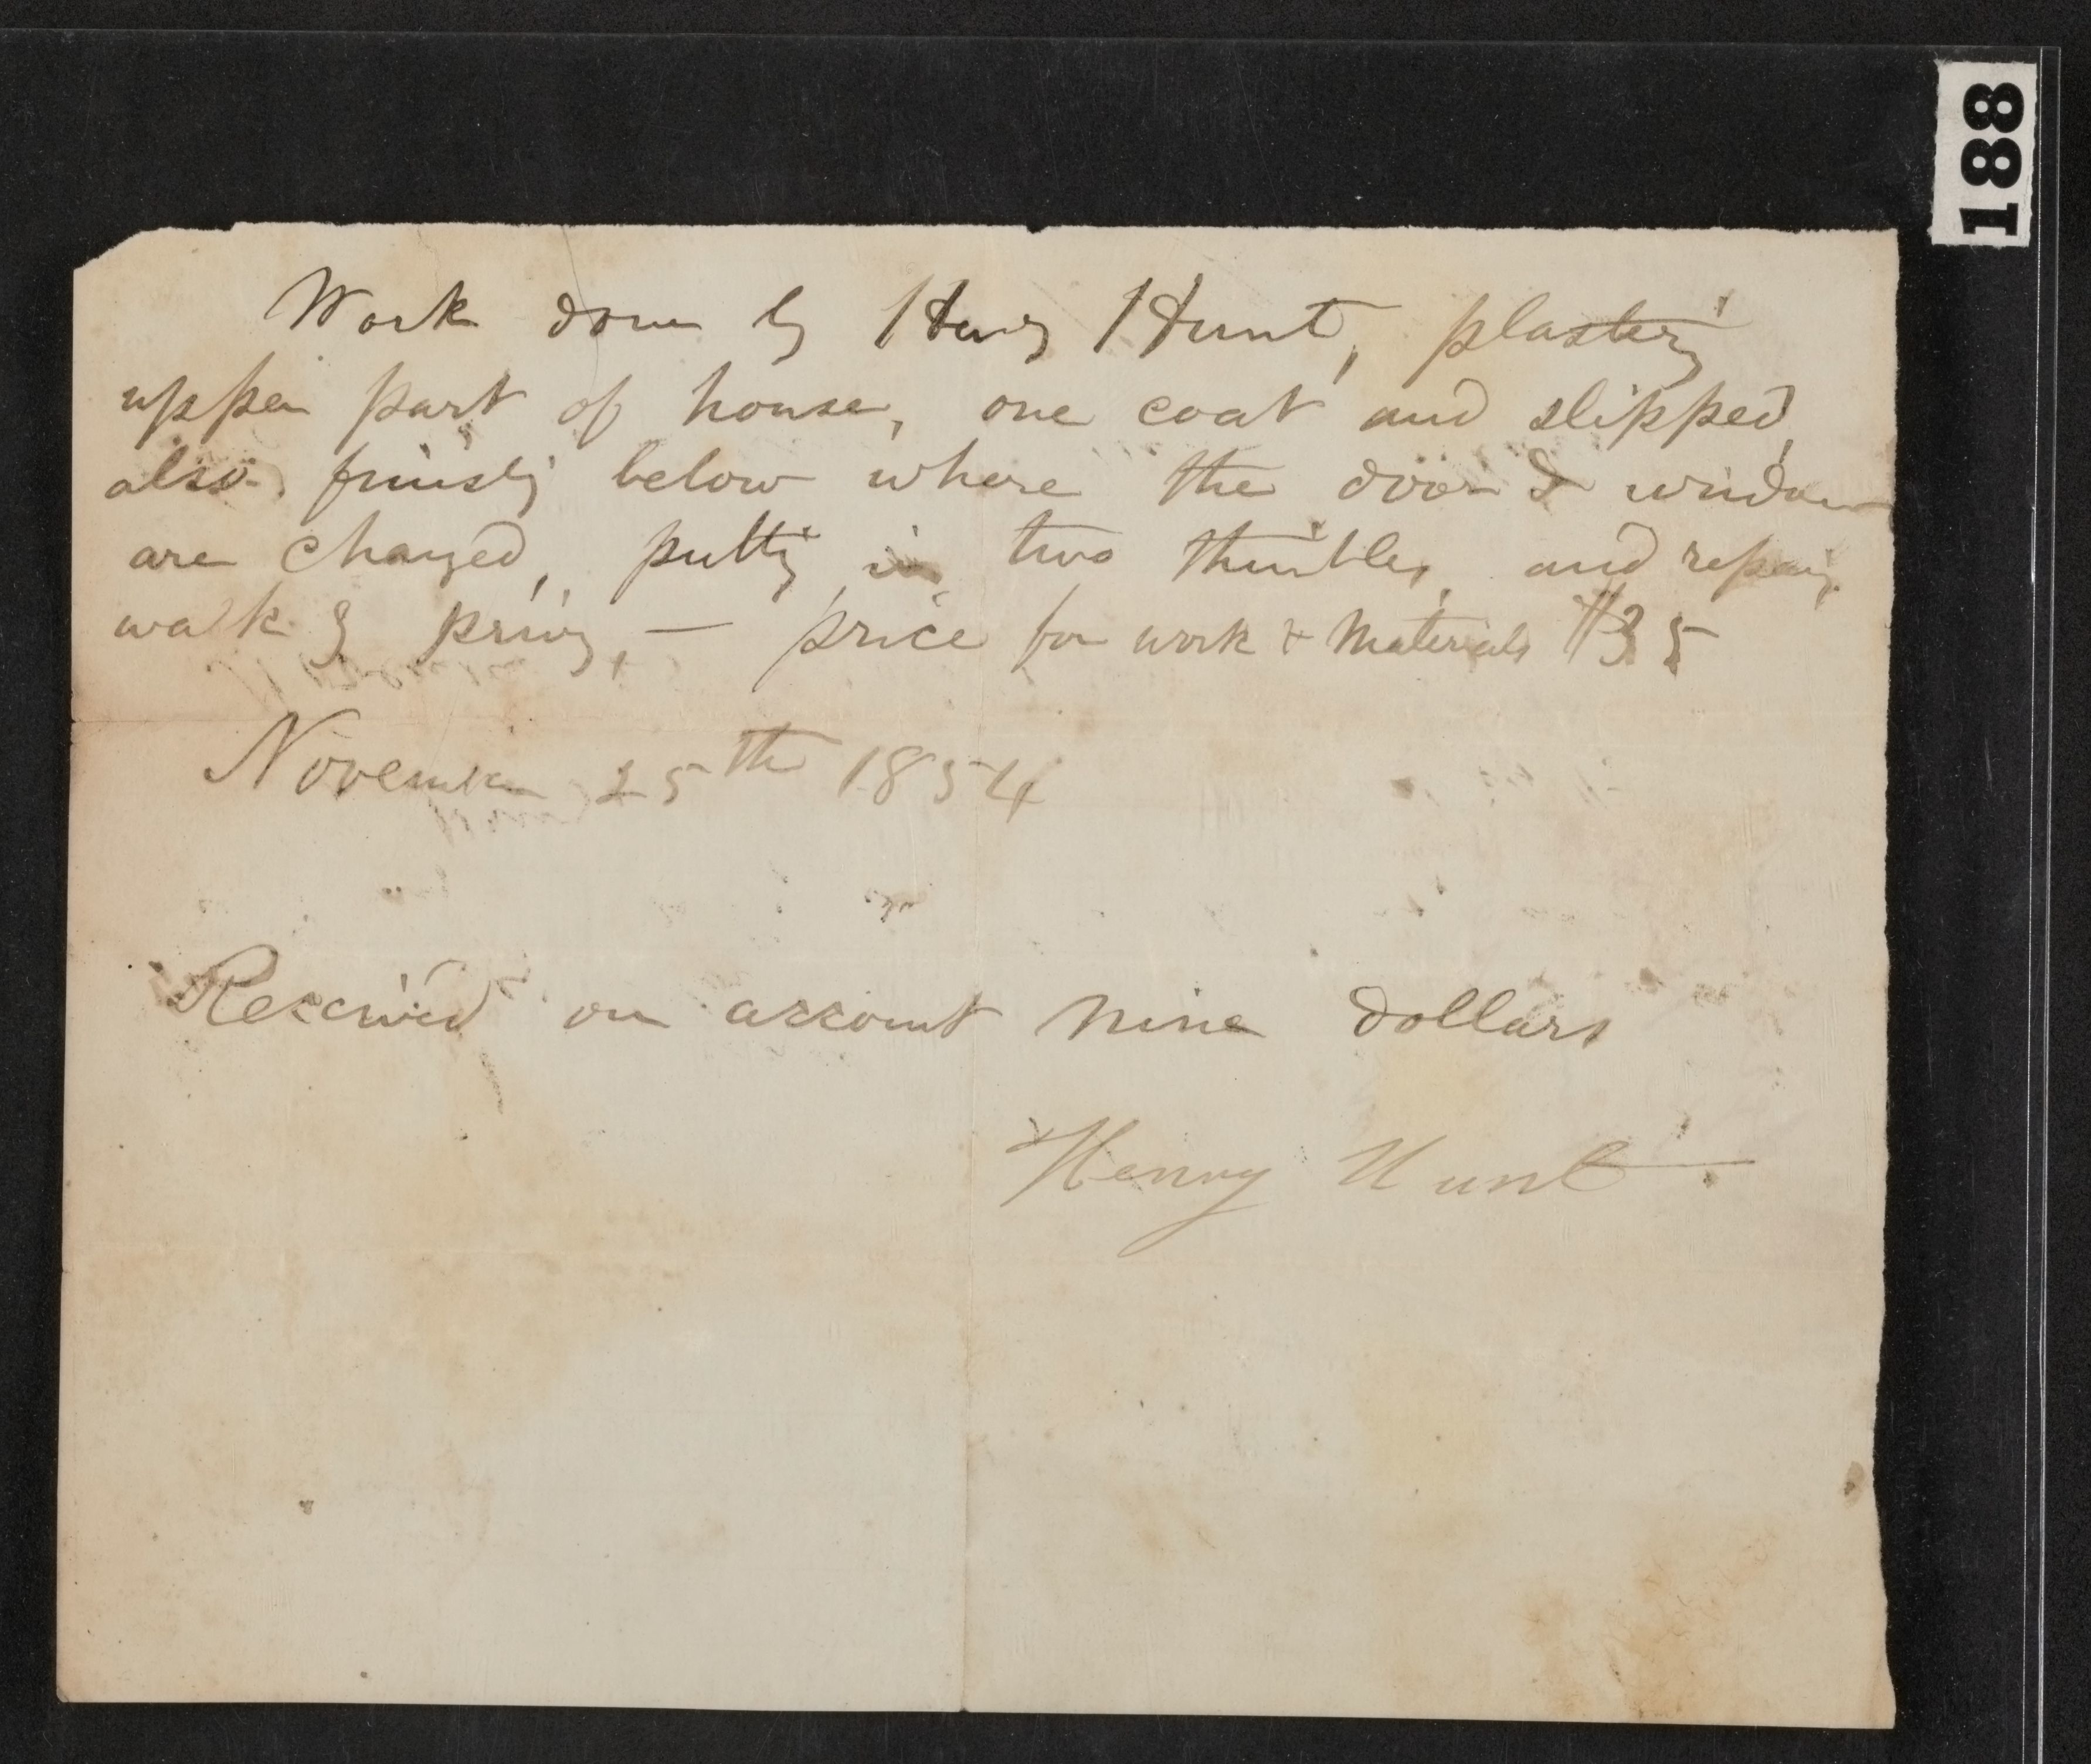 188
Work done by Henry Hunt, plastering
upper part of house, one coat and slipped,
also, finishing below where the door & window
are changed, putting in two thimbles, and repairing
walk & privy, — price for work & materials $35
November 25th 1854
Received on account nine dollars
Henry Hunt